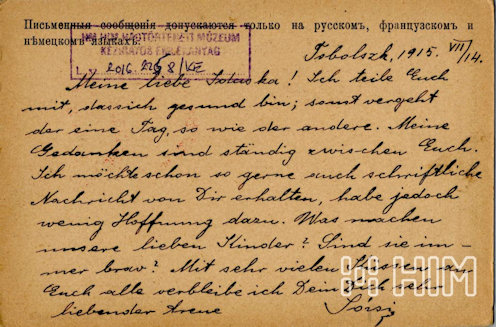 Письменныя сообщенія допускаются только на русскомъ, французскомъ и
нѣмецкомъ языкахъ.
HM HIM HADTÖRTÉNETI MÚZEUM
KÉZIRATOS EMLÉKANYAG
2016. 8/KE
Tobolszk, 1915. VII/14.
Meine liebe ! Ich teile Euch
mit, dass ich gesund bin; sonst vergeht
der eine Tag, so wie der andere. Meine
Gedanken sind ständig zwischen Euch.
Ich möchte schon so gerne auch schriftliche
Nachricht von Dir erhalten, habe jedoch
wenig Hoffnung dazu. Was machen
unsere lieben Kinder? Sind sie im-
mer brav? Mit sehr vielen Küssen an
Euch alle verbleibe ich Dein Dich sehr
liebender
HIM